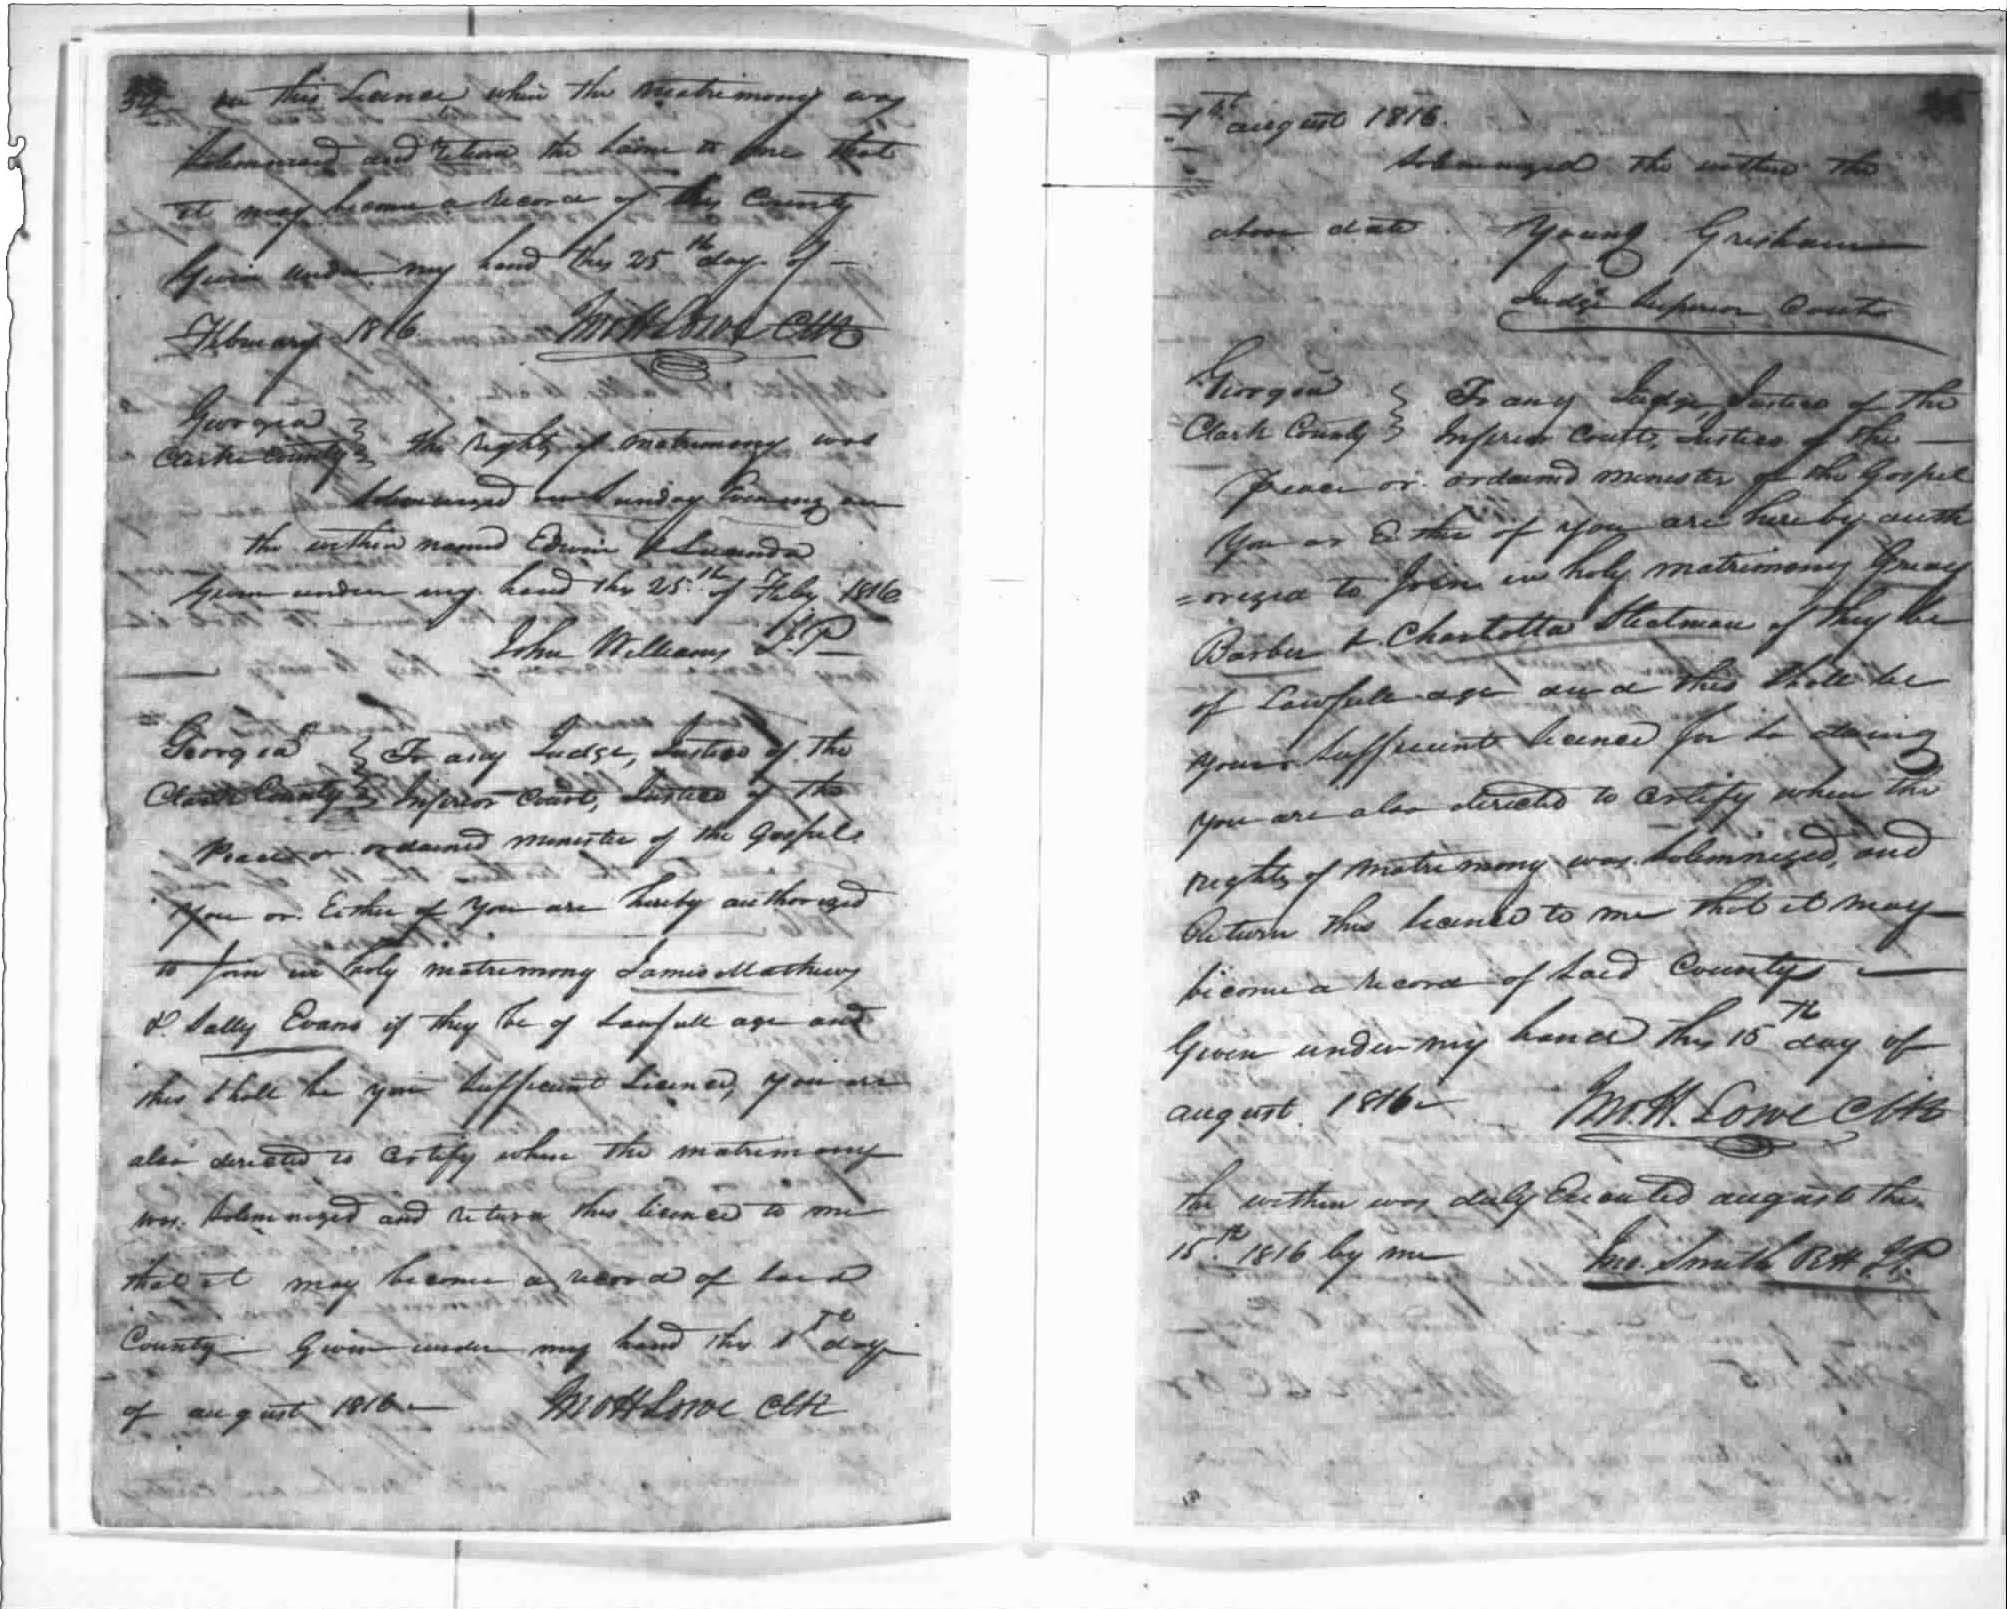 34 on this Licence when the matrimony was
Solemnized and return the same to me that
it may become a record of this County
Given under my hand this 25th day of
February 1816 Jno H Lowe Clk
Georgia
Clarke County } the rights of matrimony was
Solemnized on Sunday Evening on
the within named Edwin & Lucinda
Given under my hand this 25th of Feby 1816
John Williams J.P
Georgia } To any Judge, Justice of the
Clark County } Inferior Court, Justice of the
Peace or ordained minister of the Gospel
You or Either of You are hereby authorized
to Join in holy matrimony James Mathews
& Sally Evans if they be of Lawfull age and
this shall be your sufficient Licence, you are
also directed to certify when the matrimony
was Solemnized and return this licence to me
that it may become a record of said
County Given under my hand this 1th day
of august 1816 Jno H Lowe Clk
august 1816.
Solemnized the within the
above date. Young Grisham
Judge Inferior Court
Georgia } To any Judge, Justice of the
Clark County } Inferior Court, Justice of the
peace or ordained minister of the Gospel
You or Either of you are hereby auth
=orized to Join in holy matrimony
Barber & Charlotta Steatman if they be
of Lawfull age and this shall be
your sufficient licence for so doing
you are also directed to certify when the
rights of matrimony was solemnized, and
Return this licence to me that it may
become a record of said County
Given under my hand this 15th day of
august 1816 Jno. H. Lowe Clk
the within was duly Executed august the
15th 1816 by me Jno. Smith J.P.